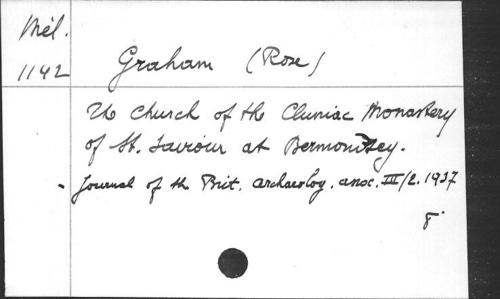 Mél.
1142
Graham (Rose)
The Church of the Cluniac Monastery
of St. Saviour at Bermondsey.
- Journal of the Brit. archaeolog. assoc. III/2. 1937
8°